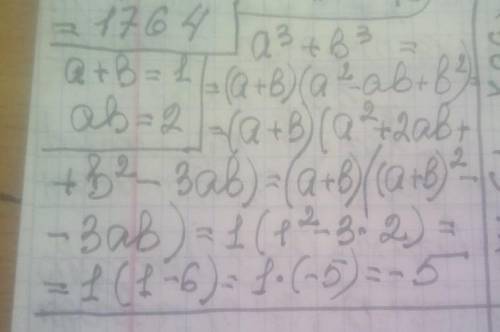 = 1764
a³ + b³ =
a + b = 1
= (a+b)(a² - ab + b²) =
ab = 2
= (a+b)(a² + 2ab +
+ b² - 3ab) = (a+b)((a+b)² -
- 3ab) = 1(1² - 3 · 2) =
= 1(1 - 6) = 1 · (-5) = -5